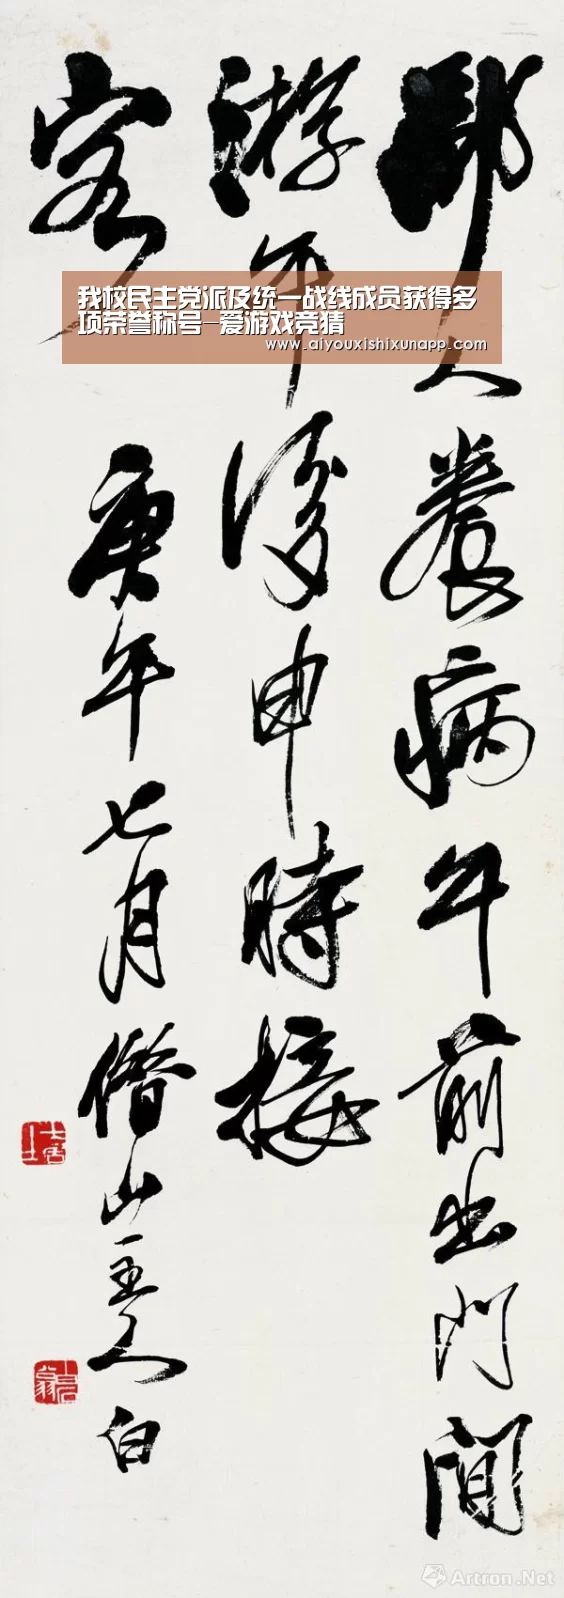 鄙人养病午前出门闲
游午后申时接
客
庚午七月借山主人白
我校民主党派及统一战线成员获得多
项荣誉称号-爱游戏竞猜
www.aiyouxishixunapp.com
Artron.Net